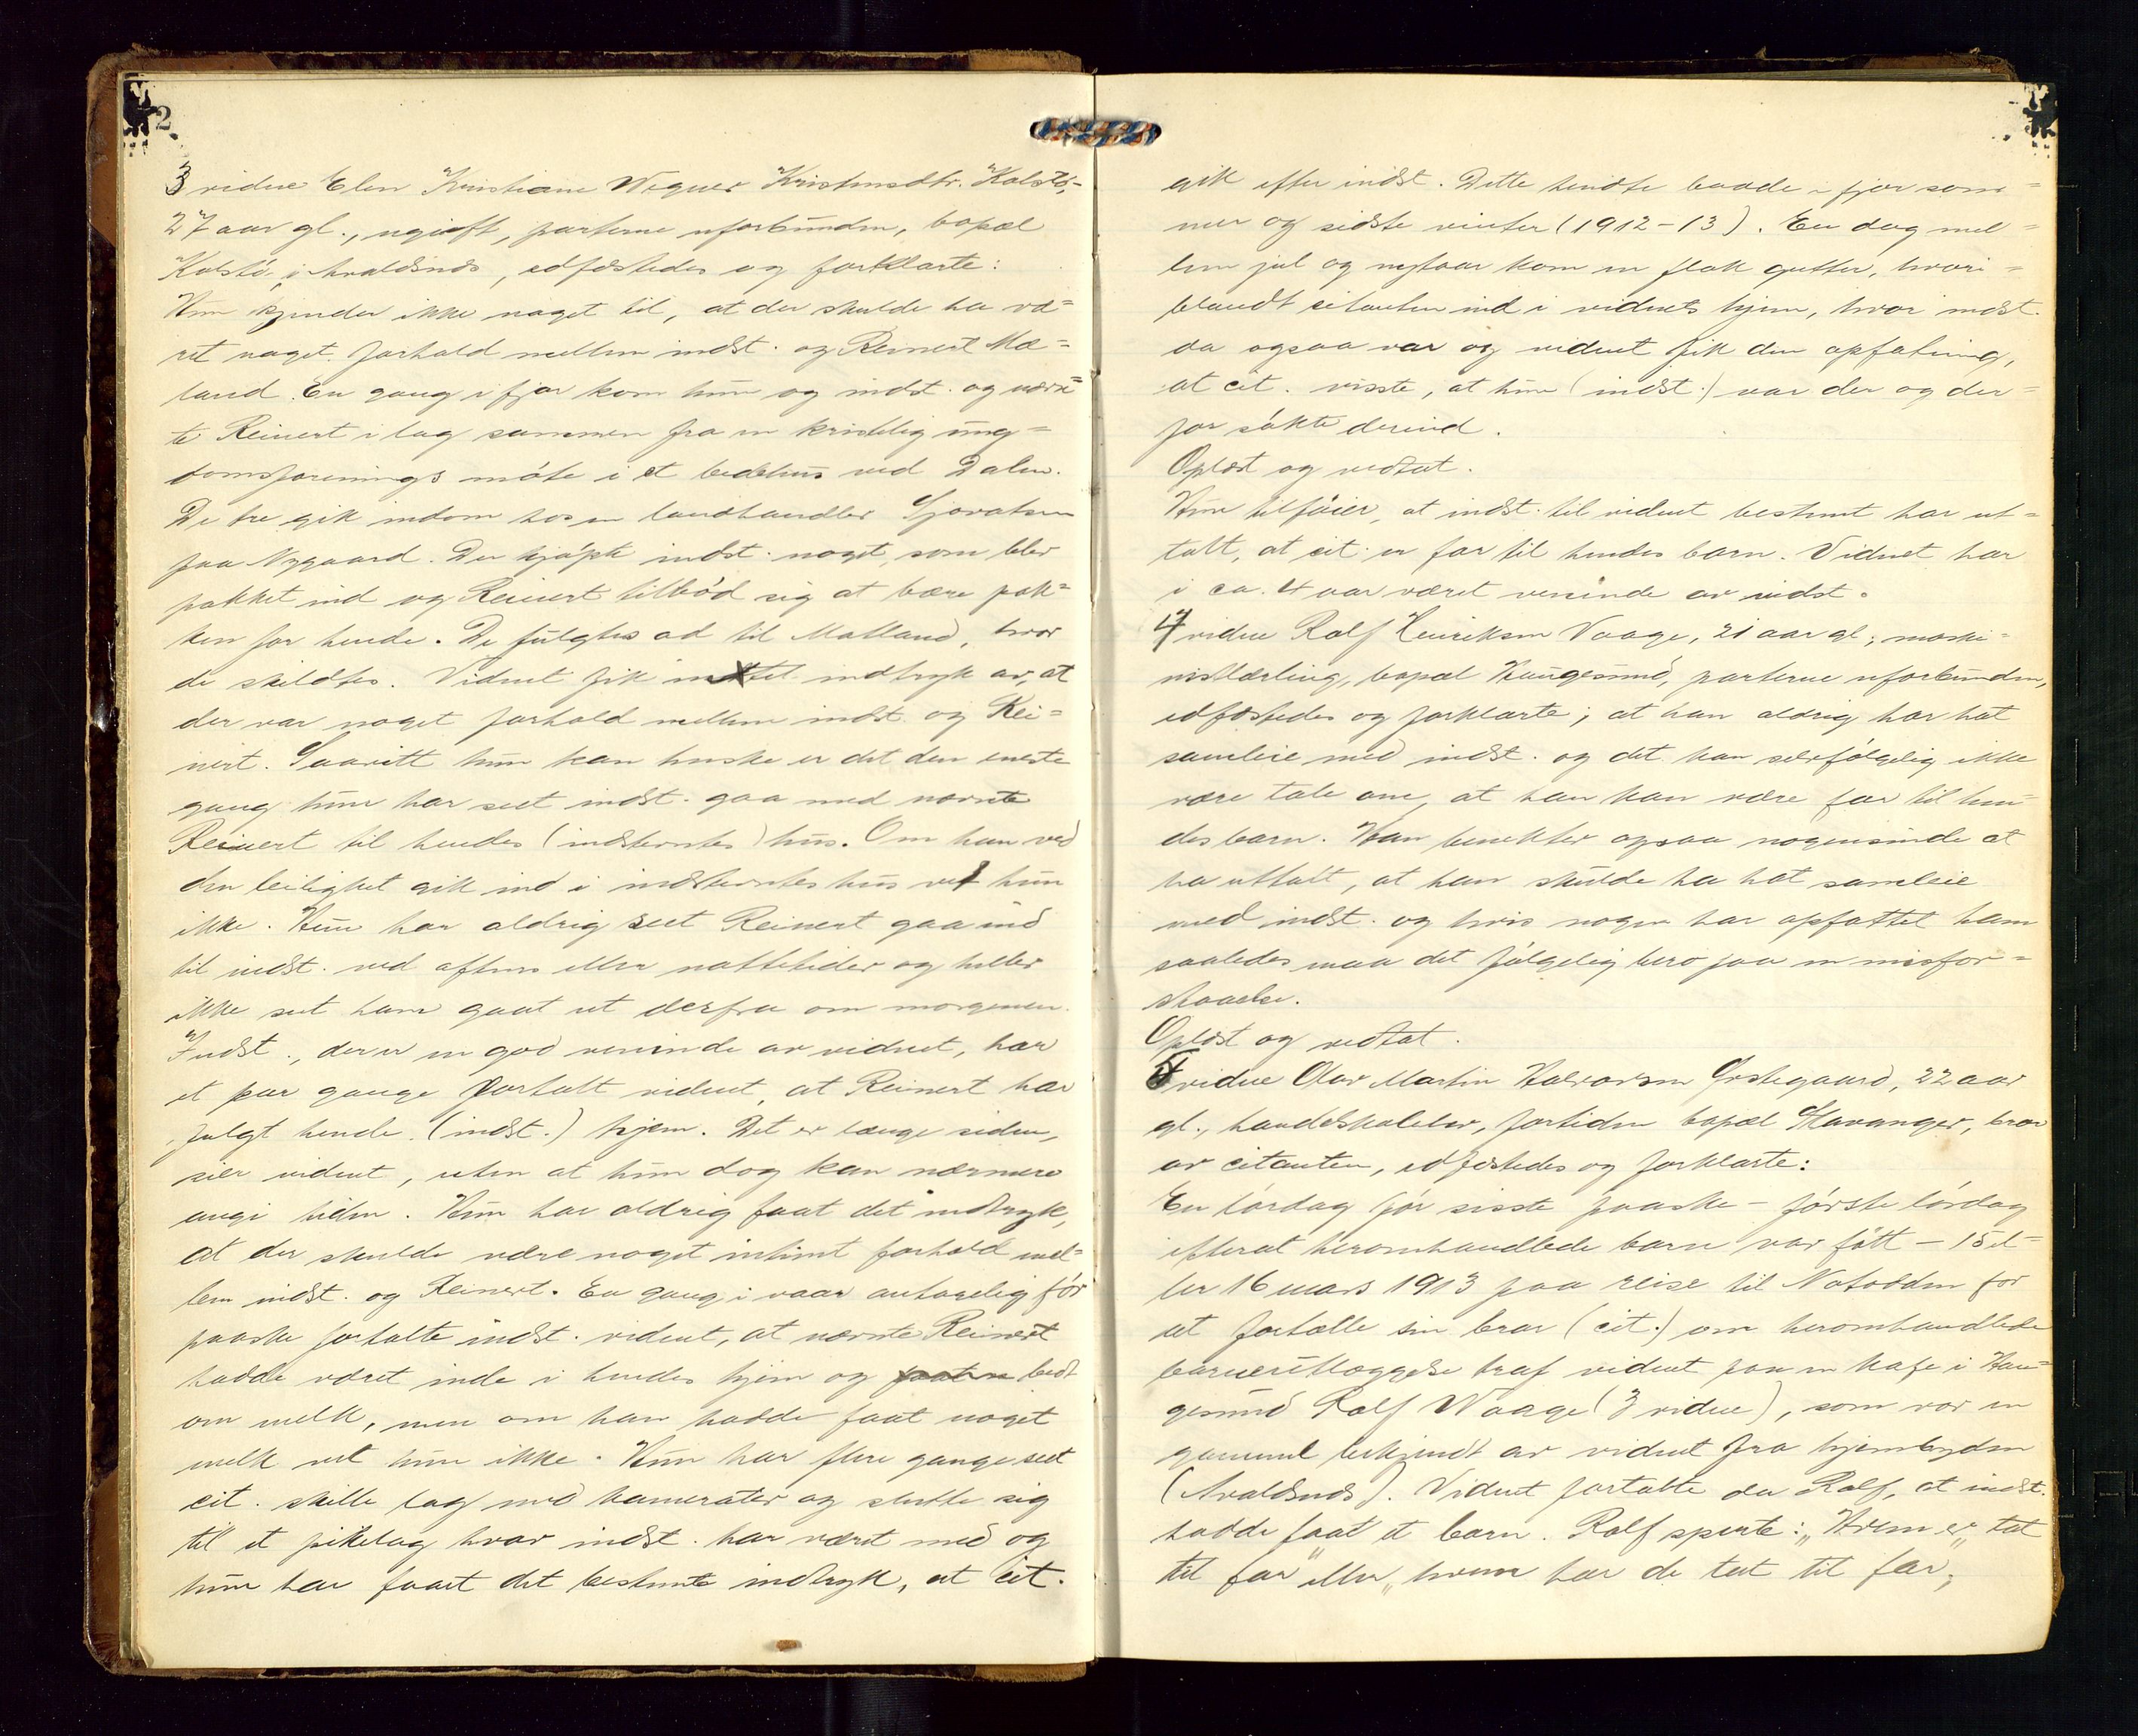 2
3 vidne Elen Kristiane Wegner Kristensdtr. Kolstø,
27 aar gl., ugift, parterne uforbunden, bopæl
Kolstø i Avaldsnes, edfæstedes og forklarte:
Hun kjender ikke noget til, at der skulde ha væ=
ret noget forhold mellem indst. og Reinert Mæ=
land. En gang i fjor kom hun og indst. og nævn=
te Reinert i lag sammen fra en kristelig ung=
domsforenings møte i et bedehus ved Dalen.
De tre gik indom hos en landhandler
paa Nygaard. Der kjøpte indst. noget, som blev
pakket ind og Reinert tilbød sig at bære pak=
ken for hende. De fulgtes ad til Matland, hvor
de skildtes. Vidnet fik intet indtryk av, at
der var noget forhold mellem indst. og Rei=
nert. Saavitt hun kan huske er det den eneste
gang hun har seet indst. gaa med nævnte
Reinert til hendes (indstevntes) hus. Om han ved
den leilighet gik ind i indstevntes hus vet hun
ikke. Hun har aldrig seet Reinert gaa ind
til indst. ved aftens eller nattetider og heller
ikke set ham gaat ut derfra om morgenen.
Indst., der er en god veninde av vidnet, har
et par gange fortalt vidnet, at Reinert har
fulgt hende (indst.) hjem. Det er længe siden,
sier vidnet, uten at hun dog kan nærmere
angi tiden. Hun har aldrig faat det indtryk,
at der skulde være noget intimt forhold mel=
lem indst. og Reinert. En gang i vaar antagelig før
paaske fortalte indst. vidnet, at nævnte Reinert
hadde været inde i hendes hjem og bedt
om melk, men om han hadde faat noget
melk vet hun ikke. Hun har flere gange seet
cit. skille lag med kamerater og slutte sig
til et pikelag hvor indst. har været med og
hun har faaet det bestemte indtryk, at cit.
gik efter indst. Dette hendte baade i fjor som=
mer og sidste vinter (1912-13). En dag mel=
lem jul og nytaar kom en flok gutter, hvori=
blandt citanten ind i vidnets hjem, hvor indst.
da ogsaa var og vidnet fik den opfatning,
at cit. visste, at hun (indst.) var der og der=
for søkte derind.
Oplæst og vedtat.
Hun tilføier, at indst. til vidnet bestemt har ut=
talt, at cit. er far til hendes barn. Vidnet har
i ca. 4 aar været veninde av indst.
4 vidne Rolf Henriksen Vaage, 21 aar gl., maski=
nistlærling, bopæl Haugesund, parterne uforbunden,
edfæstedes og forklarte; at han aldrig har hat
samleie med indst. og det kan selvfølgelig ikke
være tale om, at han kan være far til hen=
des barn. Han benekter ogsaa nogensinde at
ha uttalt, at han skulde ha hat samleie
med indst. og hvis nogen har opfattet ham
saaledes maa det følgelig bero paa en misfor=
staaelse.
Oplæst og vedtat.
5 vidne Olav Martin Halvorsen Østegaard, 22 aar
gl., handelskoleelev, fortiden bopæl Stavanger, bror
av citanten, edfæstedes og forklarte:
En lørdag før sisste paaske - første lørdag
efterat heromhandlede barn var født - 15 el=
ler 16 mars 1913 paa reise til Notodden for
at fortælle sin bror (cit.) om heromhandlede
barneutlæggelse traf vidnet paa en kafe i Hau=
gesund Rolf Waage (3 vidne), som var en
gammel bekjendt av vidnet fra hjembygden
(Avaldsnes). Vidnet fortalte da Rolf, at indst.
hadde faat et barn. Rolf spurte: „Hvem er „tat
til far" eller „hvem har de tat til far,